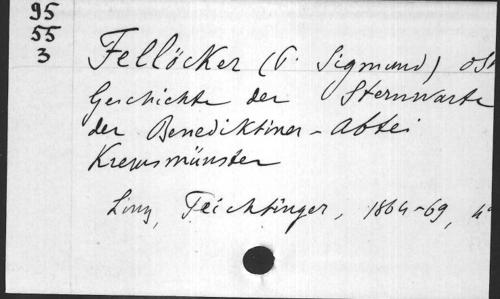 95
55
3
Fellöcker (P. Sigmund) OSB
Geschichte der Sternwarte
der Benediktiner-Abtei
Kremsmünster
Linz, Feichtinger, 1864-69, 4°